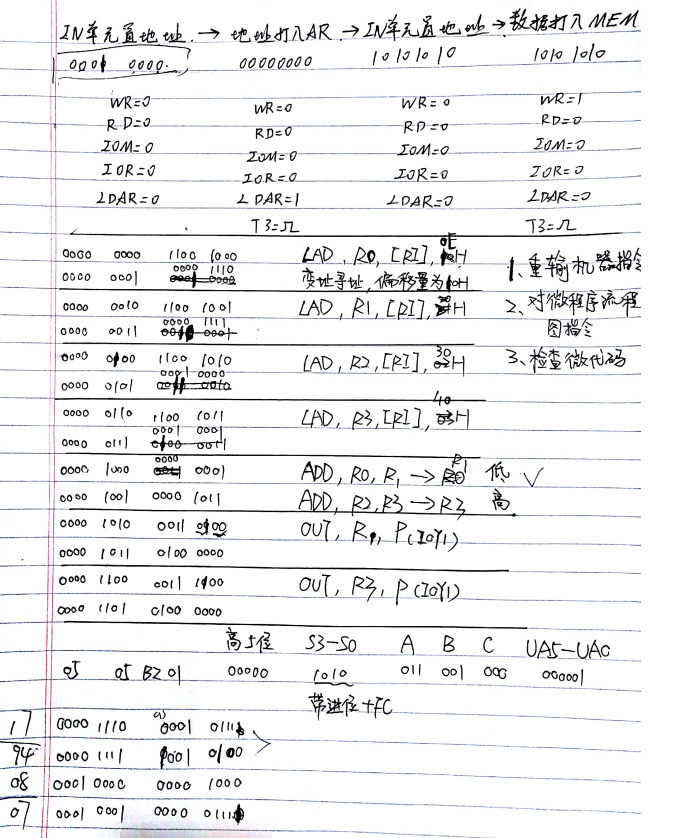 IN单元置地址 → 地址打入AR → IN单元置地址 → 数据打入MEM
0001 0000. 00000000 10101010 1010 1010
WR=0 WR=0 WR=0 WR=1
RD=0 RD=0 RD=0 RD=0
IOM=0 IOM=0 IOM=0 IOM=0
IOR=0 IOR=0 IOR=0 IOR=0
LDAR=0 LDAR=1 LDAR=0 LDAR=0
T3=⎍ T3=⎍
0000 0000 1100 1000 LAD, R0, [RI], 0E H 1、重输机器指令
0000 0001 0000 1110 变址寻址, 偏移量为 H
0000 0010 1100 1001 LAD, R1, [RI], H 2、对微程序流程
0000 0011 0000 1111 图指令
0000 0100 1100 1010 LAD, R2, [RI], 30 H 3、检查微代码
0000 0101 0001 0000
0000 0110 1100 1011 LAD, R3, [RI], 40 H
0000 0111 0001 0001
0000 1000 0000 0001 ADD, R0, R1 → R1 低 √
0000 1001 0000 1011 ADD, R2, R3 → R3 高
0000 1010 0011 0100 OUT, R1, P(IOY1)
0000 1011 0100 0000
0000 1100 0011 1100 OUT, R3, P(IOY1)
0000 1101 0100 0000
高5位 S3-S0 A B C UA5-UA0
05 05 B2 01 00000 1010 011 001 000 000001
带进位+FC
17 0000 1110 0001 0111
94 0000 1111 1001 0100
08 0001 0000 0000 1000
07 0001 0001 0000 0111